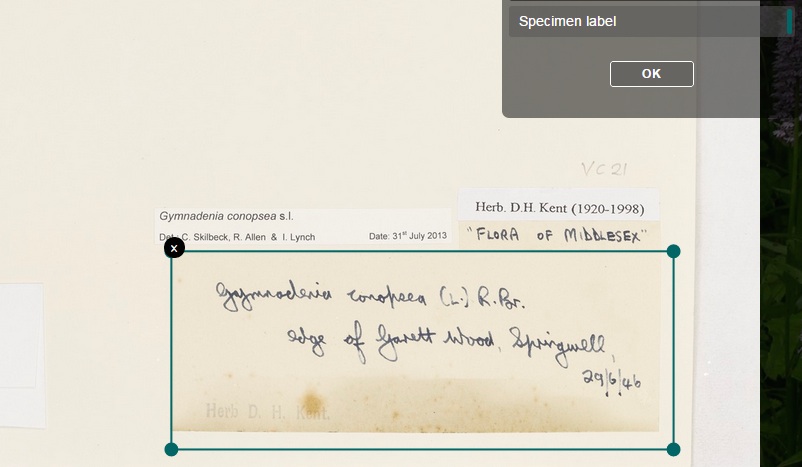 Specimen label
OK
VC 21
Gymnadenia conopsea s.l.
Det.: C. Skilbeck, R. Allen & I. Lynch Date: 31st July 2013
Herb. D.H. Kent (1920-1998)
"FLORA OF MIDDLESEX"
x
Gymnadenia conopsea (L.) R.Br.
edge of Garett Wood, Springwell,
29/6/46
Herb D. H. Kent.